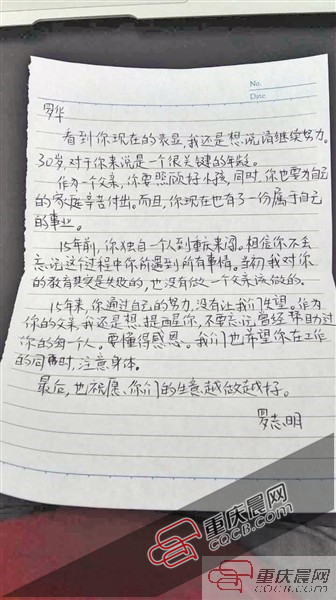 No.
Date
罗华
看到你现在的表显,我还是想说请继续努力。
30岁,对于你来说是一个很关键的年龄。
作为一个父亲,你要照顾好小孩,同时,你也要为自己
的家庭辛苦付出。而且,你现在也有了一份属于自己
的事业。
15年前,你独自一个人到重庆来闯。相信你不会
忘记这个过程中你所遇到所有事情。当初我对你
的教育其实是失败的,也没有做一个父亲该做的。
15年来,你通过自己的努力,没有让我们失望。作为
你的父亲,我还是想提醒你,不要忘记曾经帮助过
你的每一个人。要懂得感恩。我们也希望你在工作
的同时,注意身体。
最后,也祝愿你们的生意越做越好。
罗志明
重庆晨网
CQCB.COM
重庆晨网
CQCB.COM